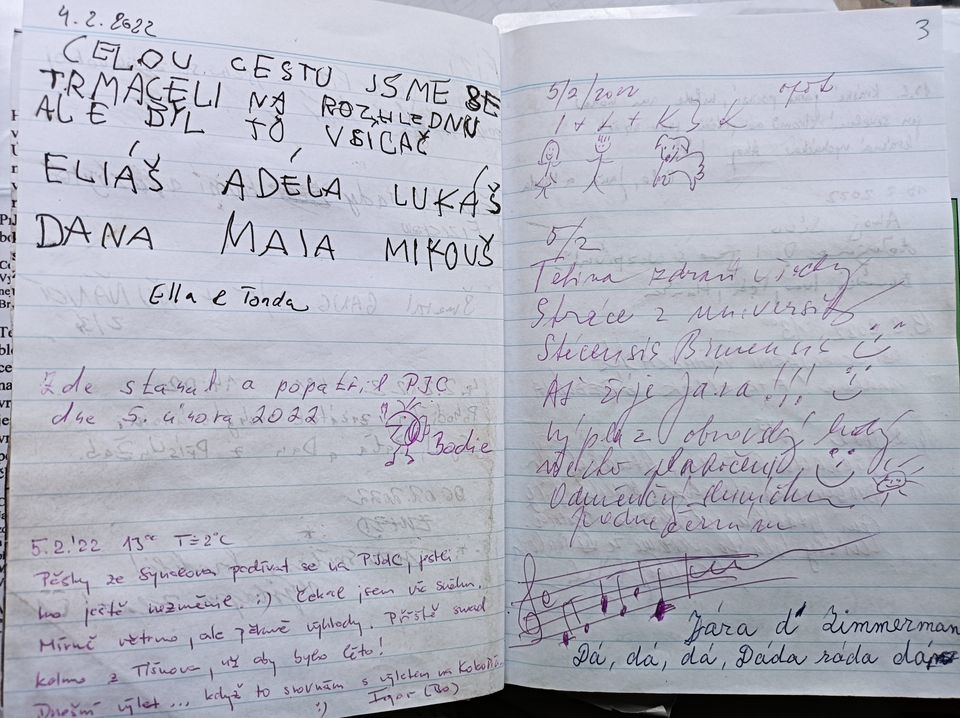 4.2.2022
CELOU CESTU JSME SE
TRMACELI NA ROZHLEDNU
ALE BYL TO VSICAČ
ELIÁŠ ADÉLA LUKÁŠ
DANA MAIA MIKOUŠ
Ella a Tonda
Zde stanul a popatřil PJC
dne 5. února 2022
Bodie
5.2.'22 13 T=2°C
Pěšky ze Synalova podívat se na PJdC, jestli
ho ještě nezměnili. :) Čekal jsem víc sněhu.
Mírně větrno, ale pěkné výhledy. Příště snad
kolmo z Tišnova, už aby bylo léto!
Dnešní výlet ... když to srovnám s výletem na
:) Igor (Bo)
3
5/2/2022 opět
1 + L + K S K
5/2
Tetina zdraví všechny
Stráce z university
Brunensis
Ať žije Jára!!!
výplaz obrovský
Jára d' Zimmerman
Dá, dá, dá, Dáda ráda dá